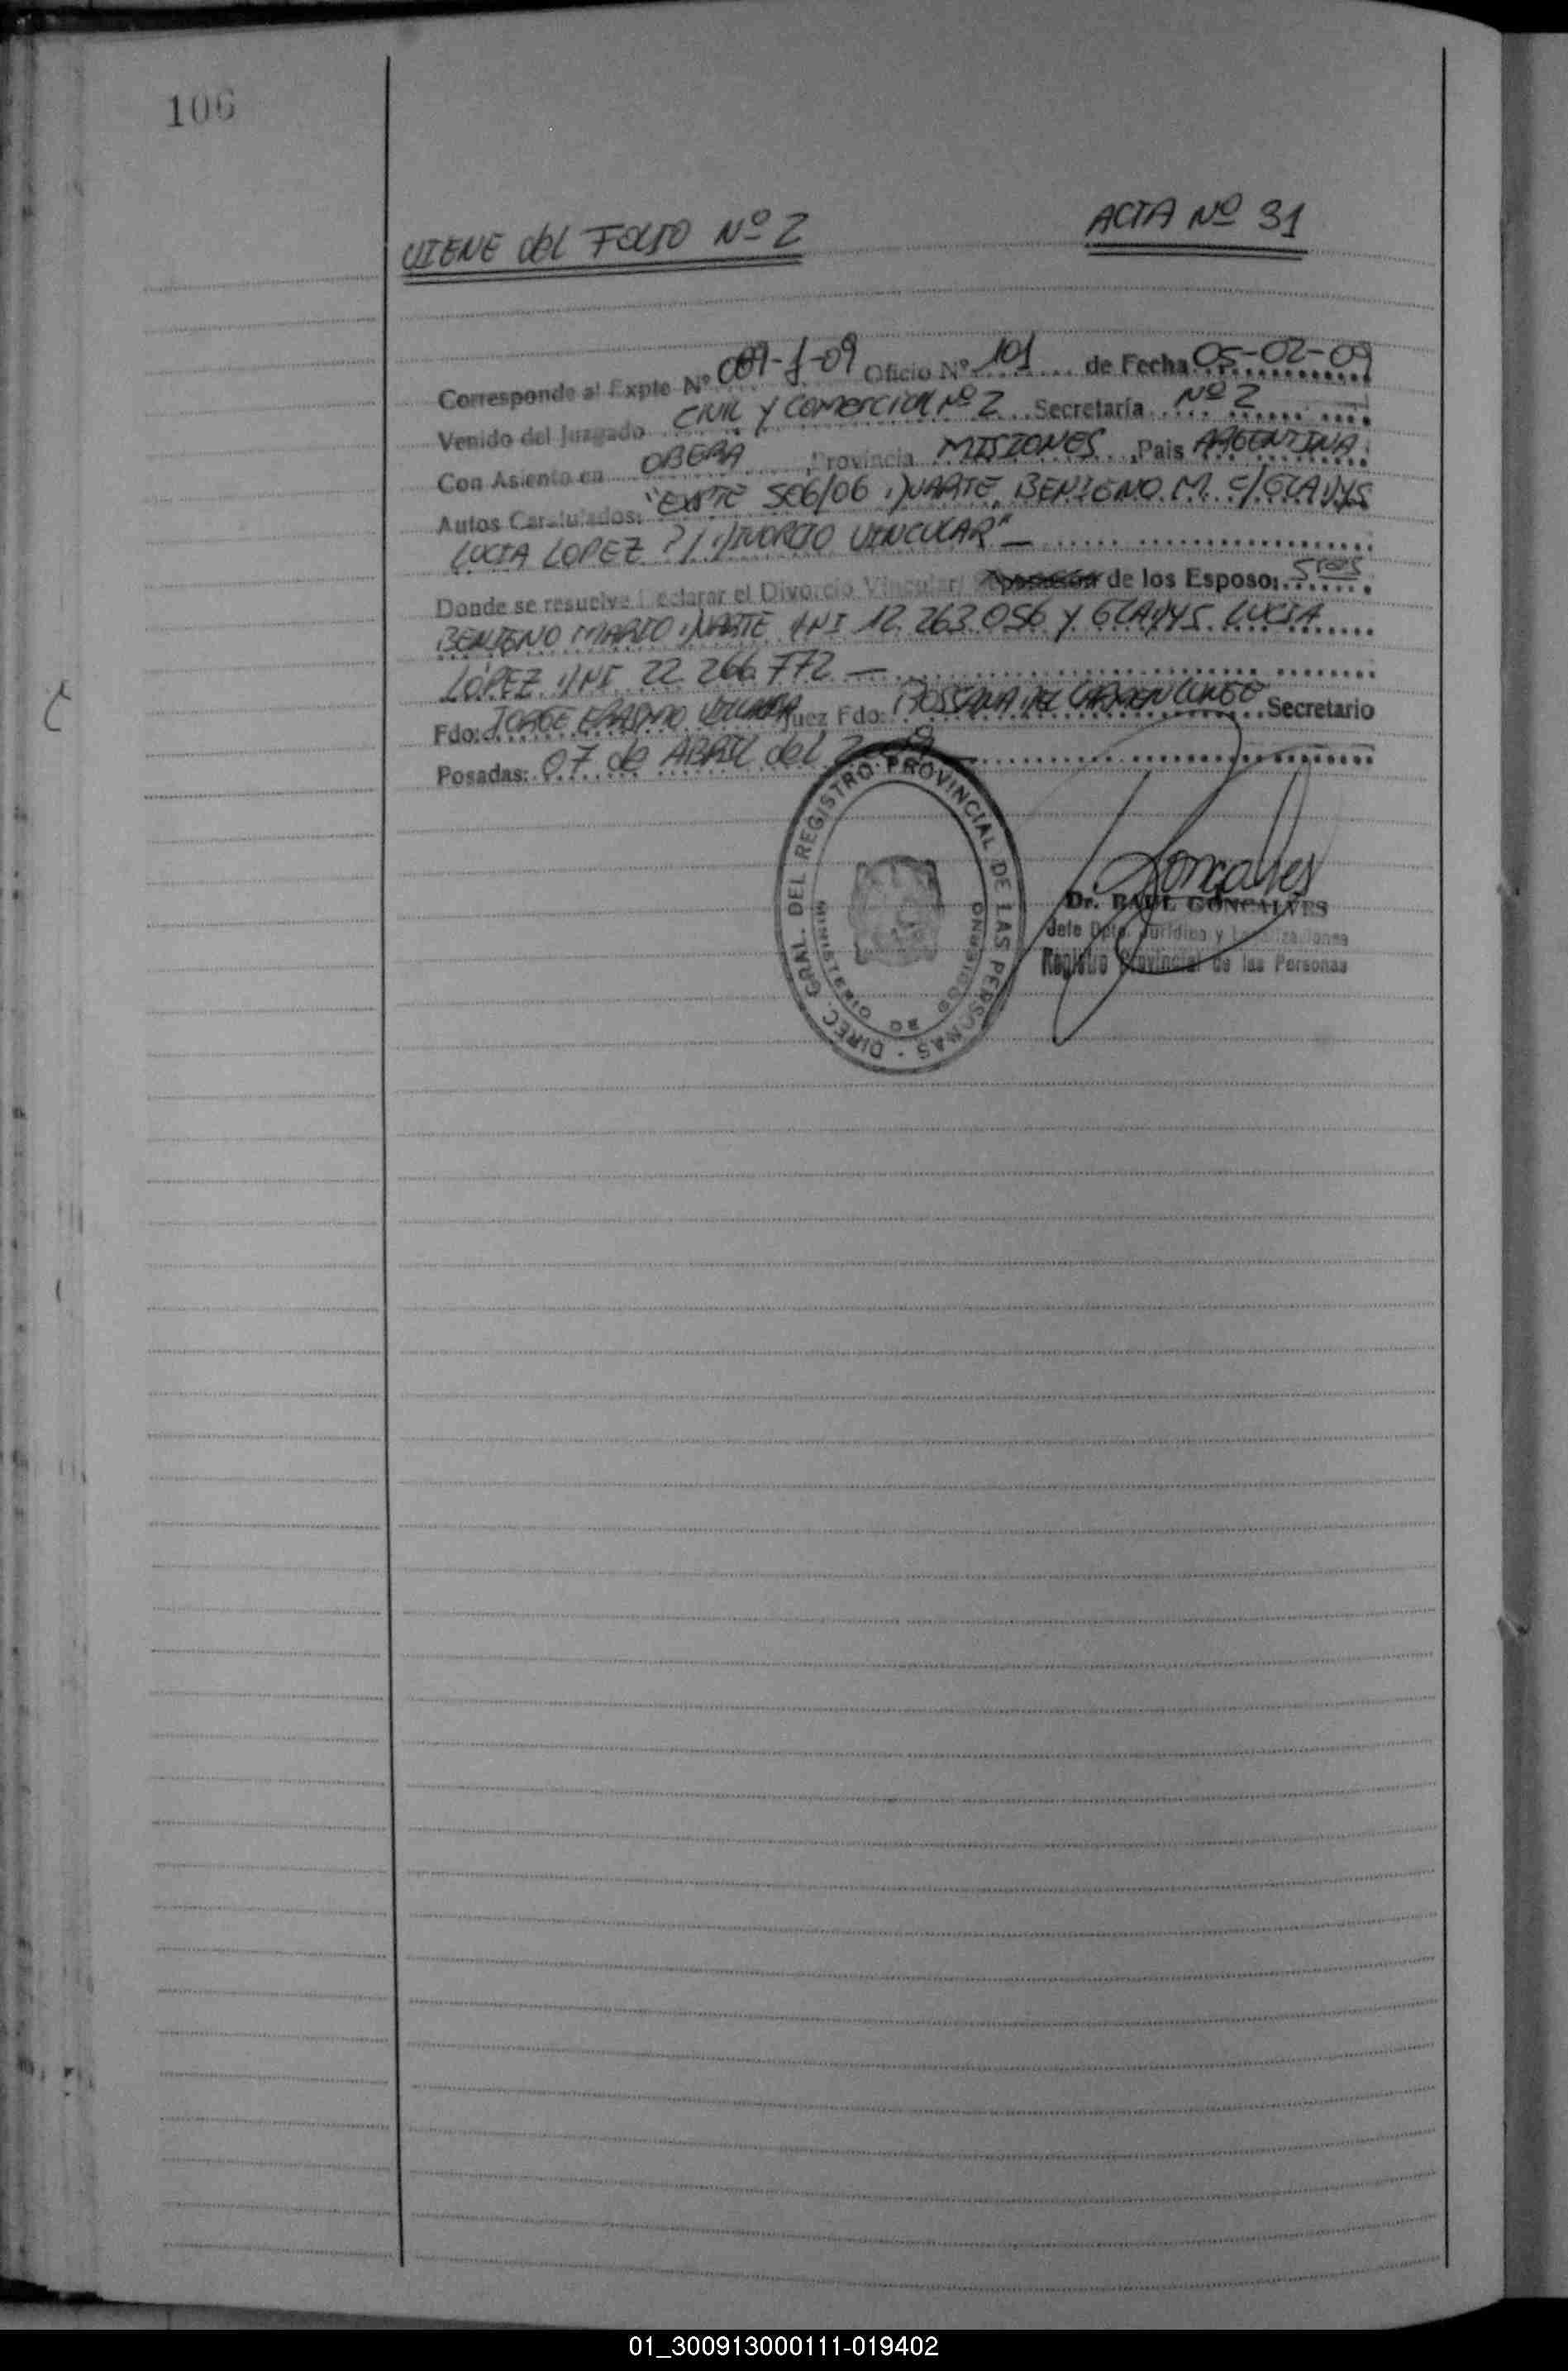 106
VIENE del FOLIO Nº 2
ACTA Nº 31
Corresponde al Expte Nº Oficio Nº 101 de Fecha 05-02-09
Venido del Juzgado CIVIL Y COMERCIAL Nº 2 Secretaría Nº 2
Con Asiento en OBERA Provincia MISIONES, Pais ARGENTINA
Autos Caratulados: "EXPTE 506/06 DUARTE, BENIGNO M. C/ GLADYS
LUCIA LOPEZ ?/ DIVORCIO VINCULAR" —
Donde se resuelve Declarar el Divorcio Vincular/ de los Esposos: Sres
BENIGNO MARIO DUARTE DNI 12.263.056 Y GLADYS LUCIA
LÓPEZ DNI 22.266.772 —
Fdo: JORGE ERASMO Juez Fdo: ROSSANA DEL CARMEN Secretario
Posadas: 07 de ABRIL del
DIREC. GRAL. DEL REGISTRO PROVINCIAL DE LAS PERSONAS
MINISTERIO DE GOBIERNO
Goncalves
Dr. RAUL GONCALVES
Jefe Dpto. Jurídico y
Registro Provincial de las Personas
01_300913000111-019402